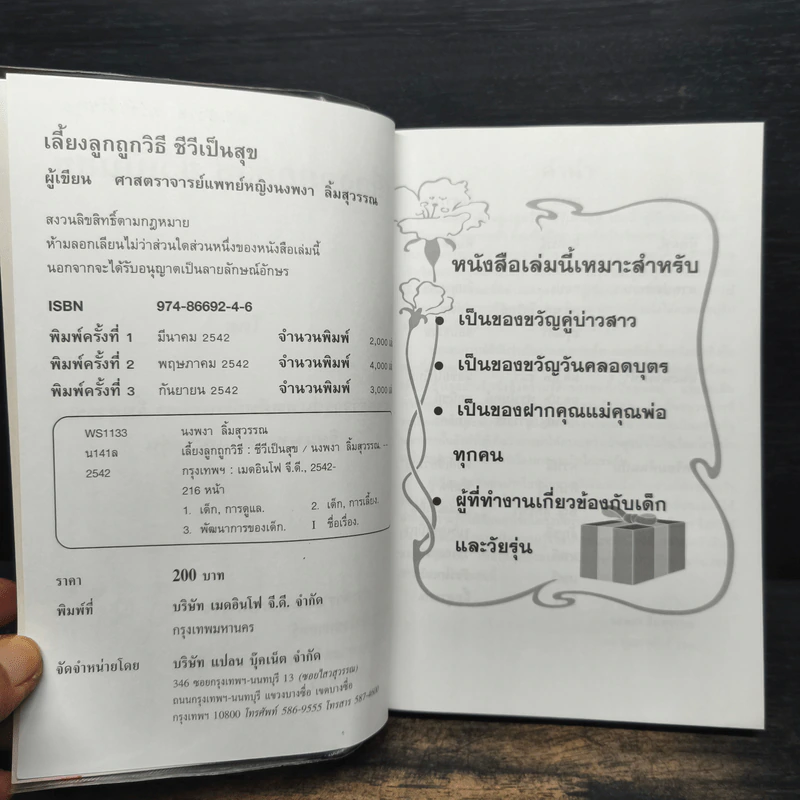 เลี้ยงลูกถูกวิธี ชีวีเป็นสุข
ผู้เขียน ศาสตราจารย์แพทย์หญิงนงพงา ลิ้มสุวรรณ
สงวนลิขสิทธิ์ตามกฎหมาย
ห้ามลอกเลียนไม่ว่าส่วนใดส่วนหนึ่งของหนังสือเล่มนี้
นอกจากจะได้รับอนุญาตเป็นลายลักษณ์อักษร
ISBN 974-86692-4-6
พิมพ์ครั้งที่ 1 มีนาคม 2542 จำนวนพิมพ์ 2,000
พิมพ์ครั้งที่ 2 พฤษภาคม 2542 จำนวนพิมพ์ 4,000
พิมพ์ครั้งที่ 3 กันยายน 2542 จำนวนพิมพ์ 3,000
WS1133 นงพงา ลิ้มสุวรรณ
น141ล เลี้ยงลูกถูกวิธี : ชีวีเป็นสุข / นงพงา ลิ้มสุวรรณ. --
2542 กรุงเทพฯ : เมดอินโฟ จี.ดี., 2542-
216 หน้า
1. เด็ก, การดูแล. 2. เด็ก, การเลี้ยง.
3. พัฒนาการของเด็ก. I ชื่อเรื่อง.
ราคา 200 บาท
พิมพ์ที่ บริษัท เมดอินโฟ จี.ดี. จำกัด
กรุงเทพมหานคร
จัดจำหน่ายโดย บริษัท แปลน บุ๊คเน็ต จำกัด
346 ซอยกรุงเทพฯ-นนทบุรี 13 (ซอยไสวสุวรรณ)
ถนนกรุงเทพฯ-นนทบุรี แขวงบางซื่อ เขตบางซื่อ
กรุงเทพฯ 10800 โทรศัพท์ 586-9555 โทรสาร
หนังสือเล่มนี้เหมาะสำหรับ
• เป็นของขวัญคู่บ่าวสาว
• เป็นของขวัญวันคลอดบุตร
• เป็นของฝากคุณแม่คุณพ่อ
ทุกคน
• ผู้ที่ทำงานเกี่ยวข้องกับเด็ก
และวัยรุ่น